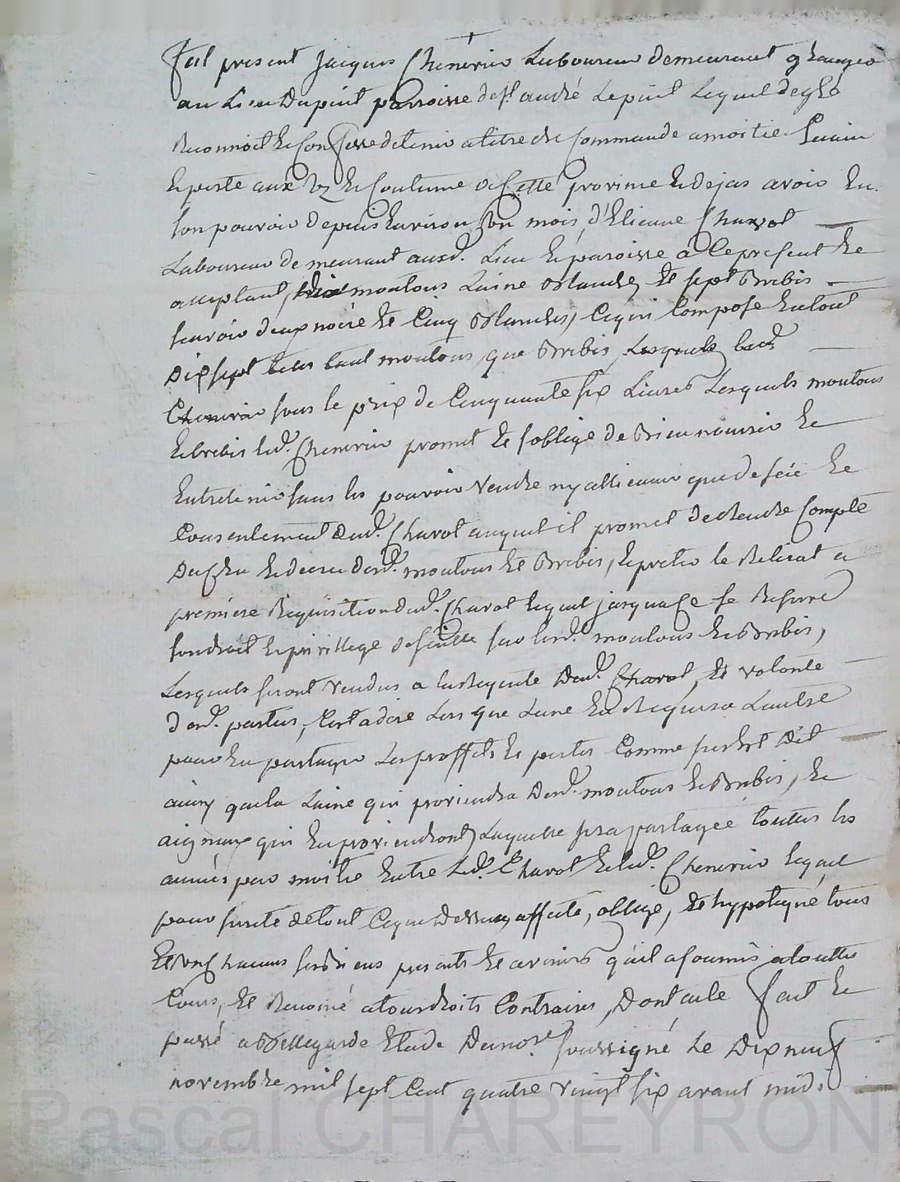 fut present jacques Chenevier Laboureur demeurant
au Lieu Dupuit parroisse de st. andré Le puit Lequel de gré
Reconnoit & Confesse detenir a titre de Commande a moitié
& perte aux us & Coutume de Cette province & dejas avoir En
son pouvoir depuis Environ un mois, d'Etienne Chavot
Laboureur demeurant aux d. Lieu & paroisse a Ce present &
acceptant, moutons Laine blanche, & sept Brebis
scavoir deux noire & Cinq blanches, Ce qui Compose En tout
Dix sept tant moutons que Brebis, Lesquels led.
Chenevier sous le prix de Cinquante six Livres Lesquels moutons
& brebis led. Chenevier promet & s'oblige de Bien nourrir &
Entretenir sans les pouvoir vendre ny allienner que de &
Consentement dud. Chavot auquel il promet de Rendre Compte
Du Cru & decru desd. moutons & Brebis, & preter le Relicat a
premiere Requisition dud. Chavot Lequel jusqua Ce se Reserve
son droit & privillege de suitte sur lesd. moutons & Brebis,
Lesquels seront vendus a la Requete Dud. Chavot, & volonté
desd. parties, C'est a dire Lorsque L'une En Requerra L'autre
pour En partager Les proffits & pertes Comme sus Est Dit
ainsy que la Laine qui proviendra Desd. moutons & Brebis, &
aigneaux qui En proviendront, Laquelle sera partagée toutes les
années par moitié Entre Led. Chavot & led. Chenevier Lequel
pour sureté de tout Ce que Dessus a affecté, obligé, & hypotequé tous
& uns Chacuns ses Biens presents & avenirs qu'il a soumis a touttes
Cours, & Renoncé a tous droits Contraires, Dont acte fait &
passé a Bellegarde Etude Du nore. soussigné Le Dix neuf
novembre mil sept Cent quatre vingt six avant midi
Pascal CHAREYRON